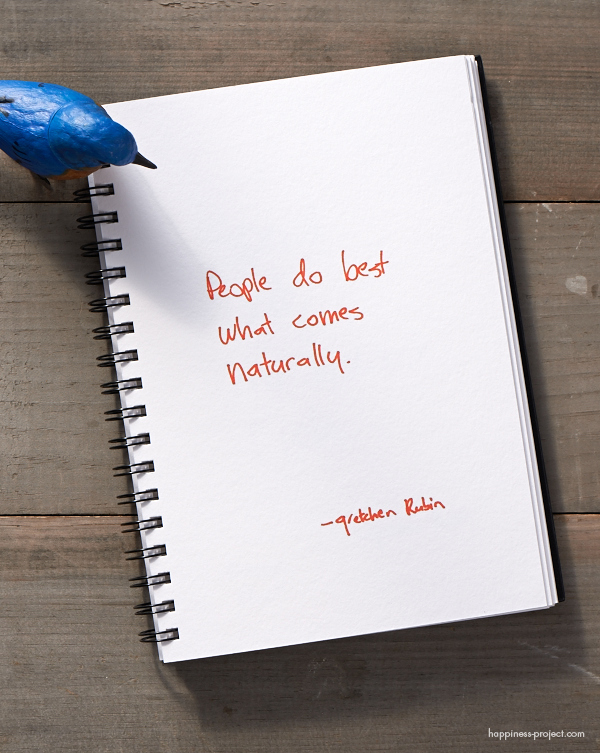 People do best
what comes
naturally.
-gretchen Rubin
happiness-project.com